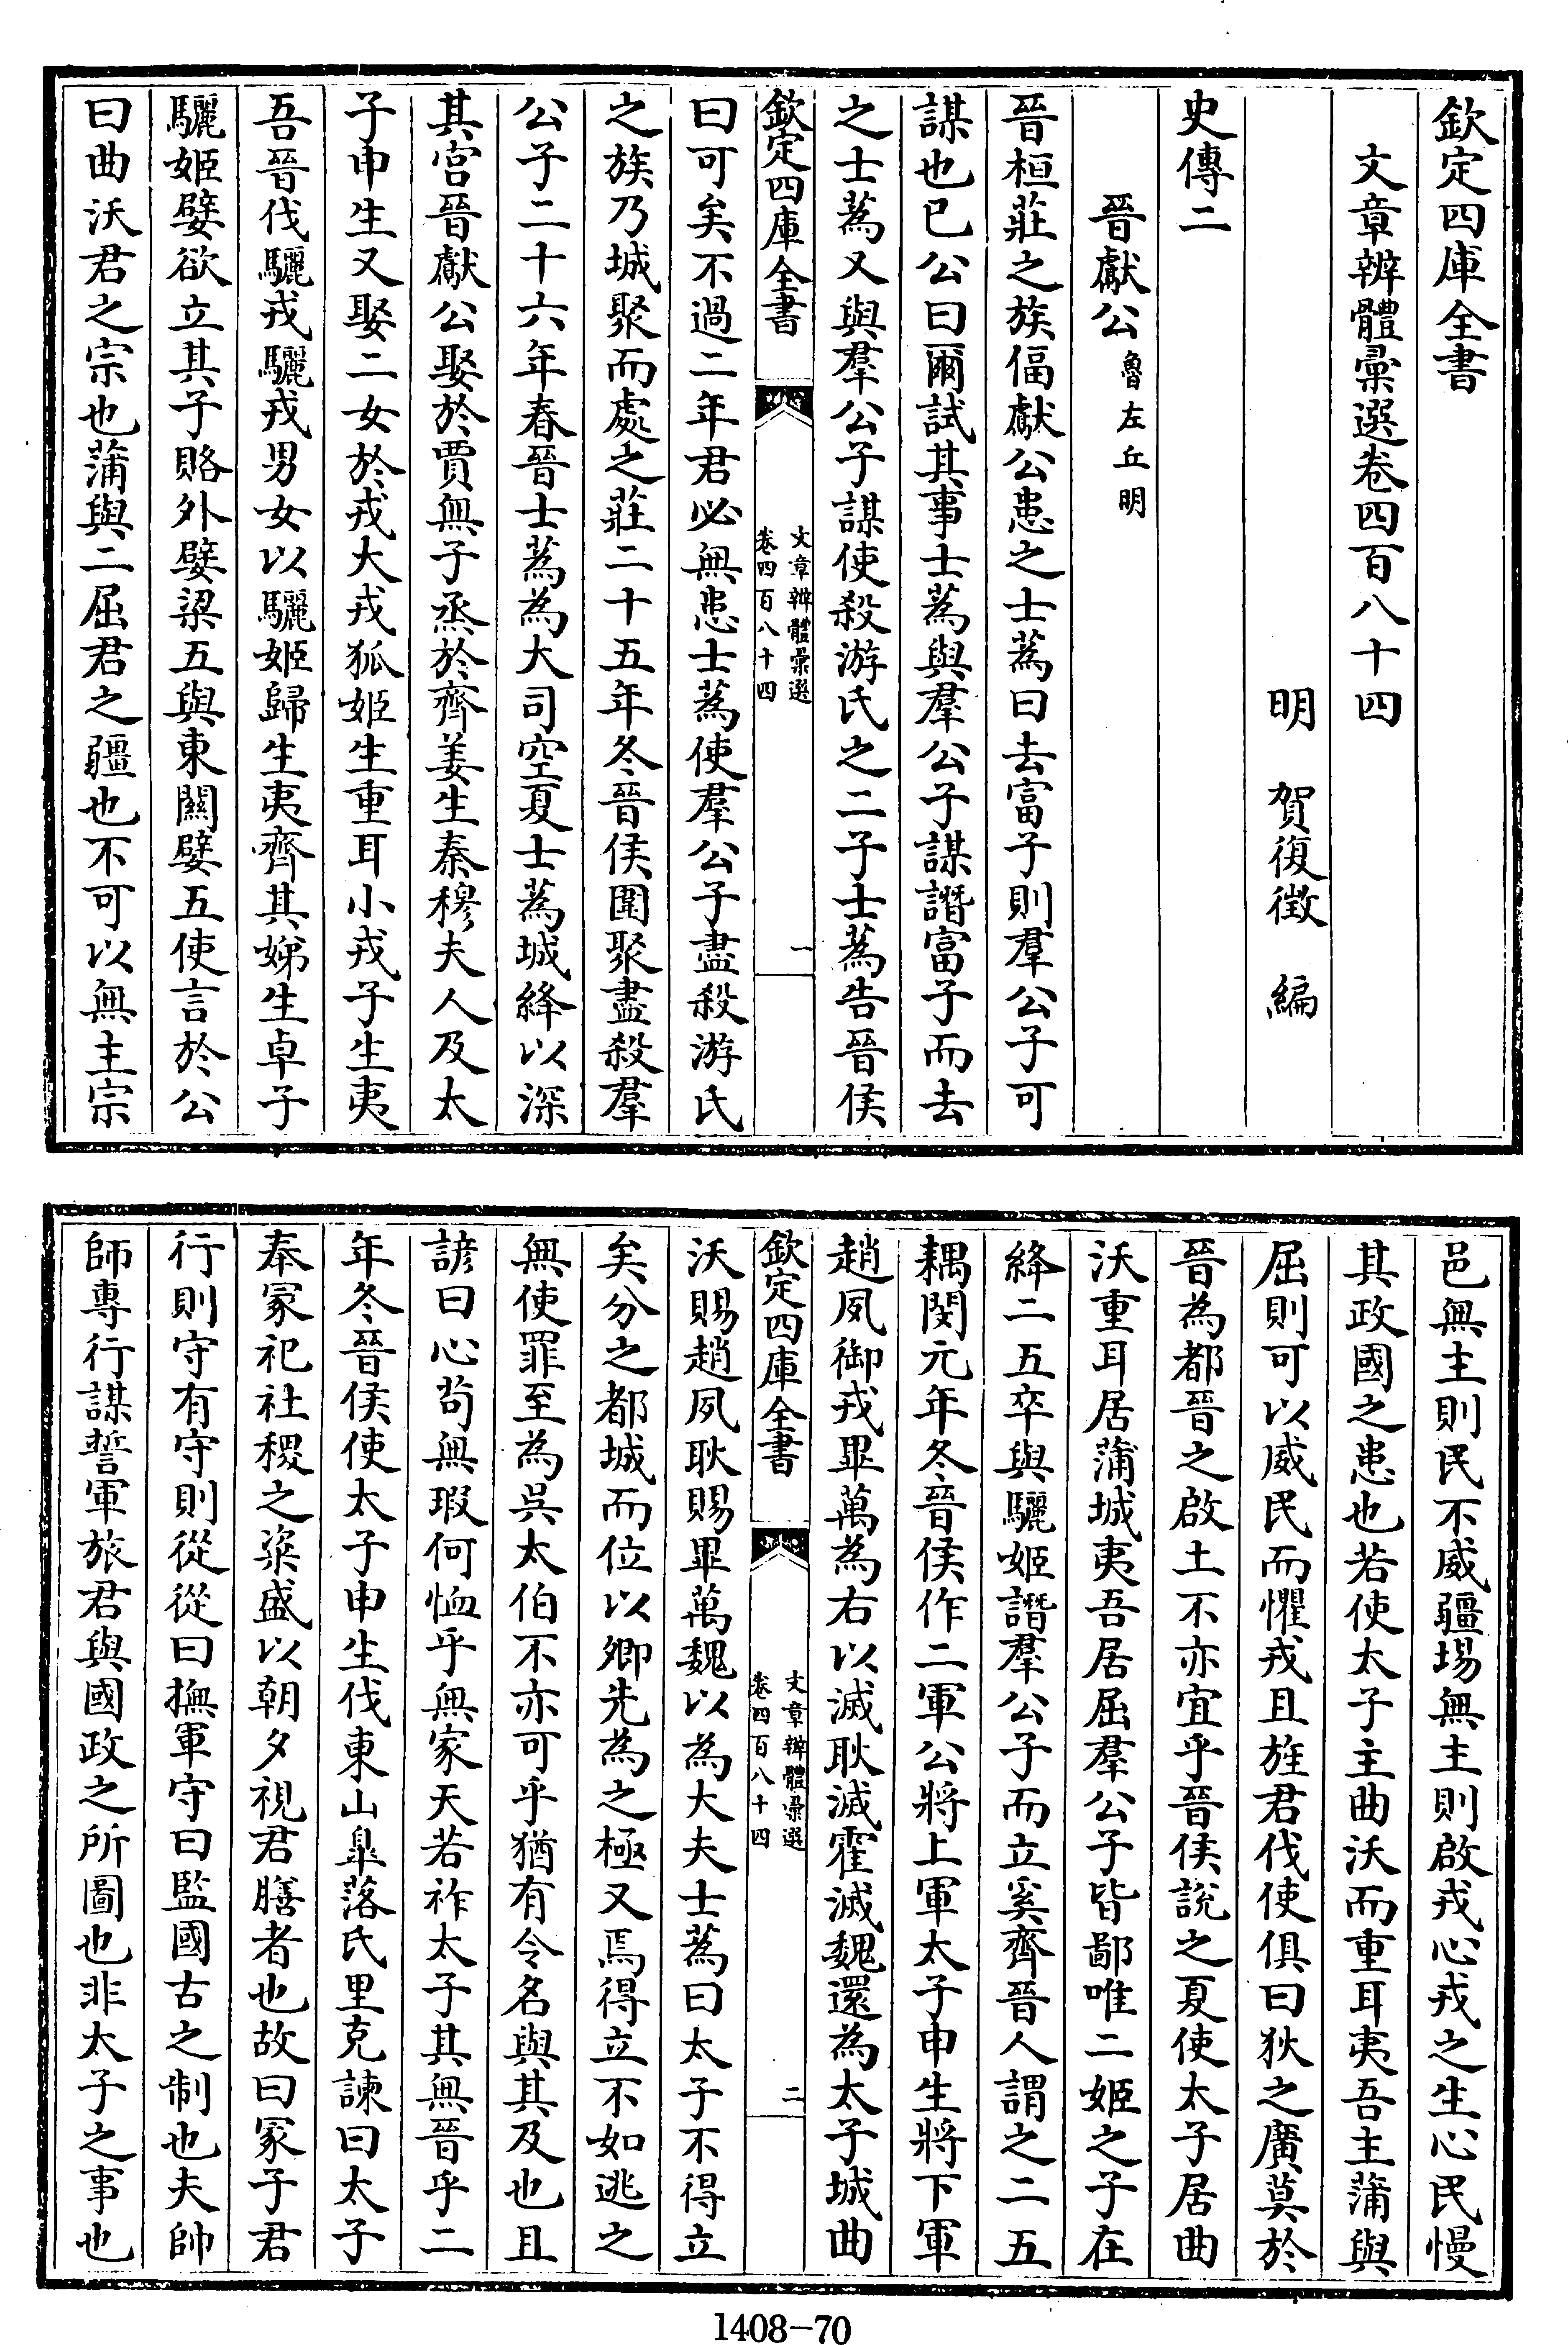 欽定四庫全書
文章辨體彚選卷四百八十四
明　賀復徵　編
史傳二
晉獻公魯左丘明
晉桓莊之族偪獻公患之士蒍曰去富子則羣公子可
謀也已公曰爾試其事士蒍與羣公子謀譖富子而去
之士蒍又與羣公子謀使殺游氏之二子士蒍告晉侯
欽定四庫全書
文章辨體彚選
卷四百八十四
一
曰可矣不過二年君必無患士蒍使羣公子盡殺游氏
之族乃城聚而處之莊二十五年冬晉侯圍聚盡殺羣
公子二十六年春晉士蒍為大司空夏士蒍城絳以深
其宫晉獻公娶於賈無子烝於齊姜生秦穆夫人及太
子申生又娶二女於戎大戎狐姬生重耳小戎子生夷
吾晉伐驪戎驪戎男女以驪姬歸生夷齊其娣生卓子
驪姬嬖欲立其子賂外嬖梁五與東關嬖五使言於公
曰曲沃君之宗也蒲與二屈君之疆也不可以無主宗
邑無主則民不威疆埸無主則啟戎心戎之生心民慢
其政國之患也若使太子主曲沃而重耳夷吾主蒲與
屈則可以威民而懼戎且旌君伐使俱曰狄之廣莫於
晉為都晉之啟土不亦宜乎晉侯說之夏使太子居曲
沃重耳居蒲城夷吾居屈羣公子皆鄙唯二姬之子在
絳二五卒與驪姬譖羣公子而立奚齊晉人謂之二五
耦閔元年冬晉侯作二軍公將上軍太子申生將下軍
趙夙御戎畢萬為右以滅耿滅霍滅魏還為太子城曲
欽定四庫全書
文章辨體彚選
卷四百八十四
二
沃賜趙夙耿賜畢萬魏以為大夫士蒍曰太子不得立
矣分之都城而位以卿先為之極又焉得立不如逃之
無使罪至為吳太伯不亦可乎猶有令名與其及也且
諺曰心苟無瑕何恤乎無家天若祚太子其無晉乎二
年冬晉侯使太子申生伐東山臯落氏里克諫曰太子
奉冡祀社稷之粢盛以朝夕視君膳者也故曰冡子君
行則守有守則從從曰撫軍守曰監國古之制也夫帥
師專行謀誓軍旅君與國政之所圖也非太子之事也
1408-70